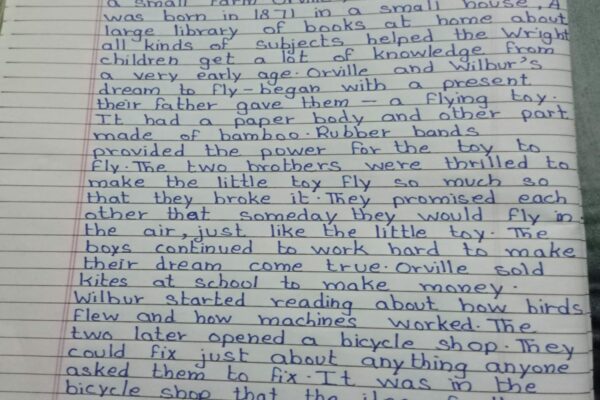 a small farm
was born in 1871 in a small house. A
large library of books at home about
all kinds of subjects helped the Wright
children get a lot of knowledge from
a very early age. Orville and Wilbur's
dream to fly - began with a present
their father gave them - a flying toy.
It had a paper body and other part
made of bamboo. Rubber bands
provided the power for the toy to
fly. The two brothers were thrilled to
make the little toy fly so much so
that they broke it. They promised each
other that someday they would fly in
the air, just like the little toy. The
boys continued to work hard to make
their dream come true. Orville sold
kites at school to make money.
Wilbur started reading about how birds
flew and how machines worked. The
two later opened a bicycle shop. They
could fix just about anything anyone
asked them to fix. It was in the
bicycle shop that the